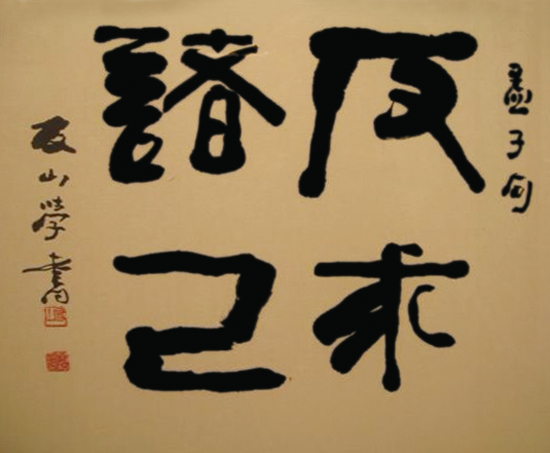 孟子句
反求
諸己
友山學書